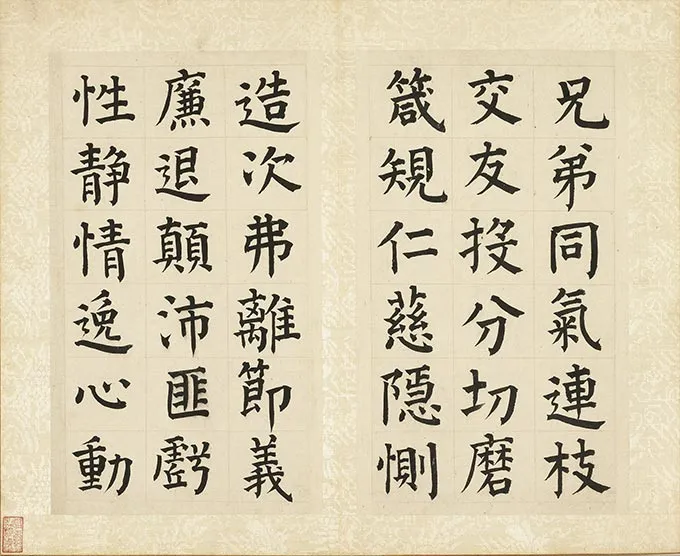 兄弟同氣連枝
交友投分切磨
箴規仁慈隱惻
造次弗離節義
廉退顛沛匪虧
性靜情逸心動